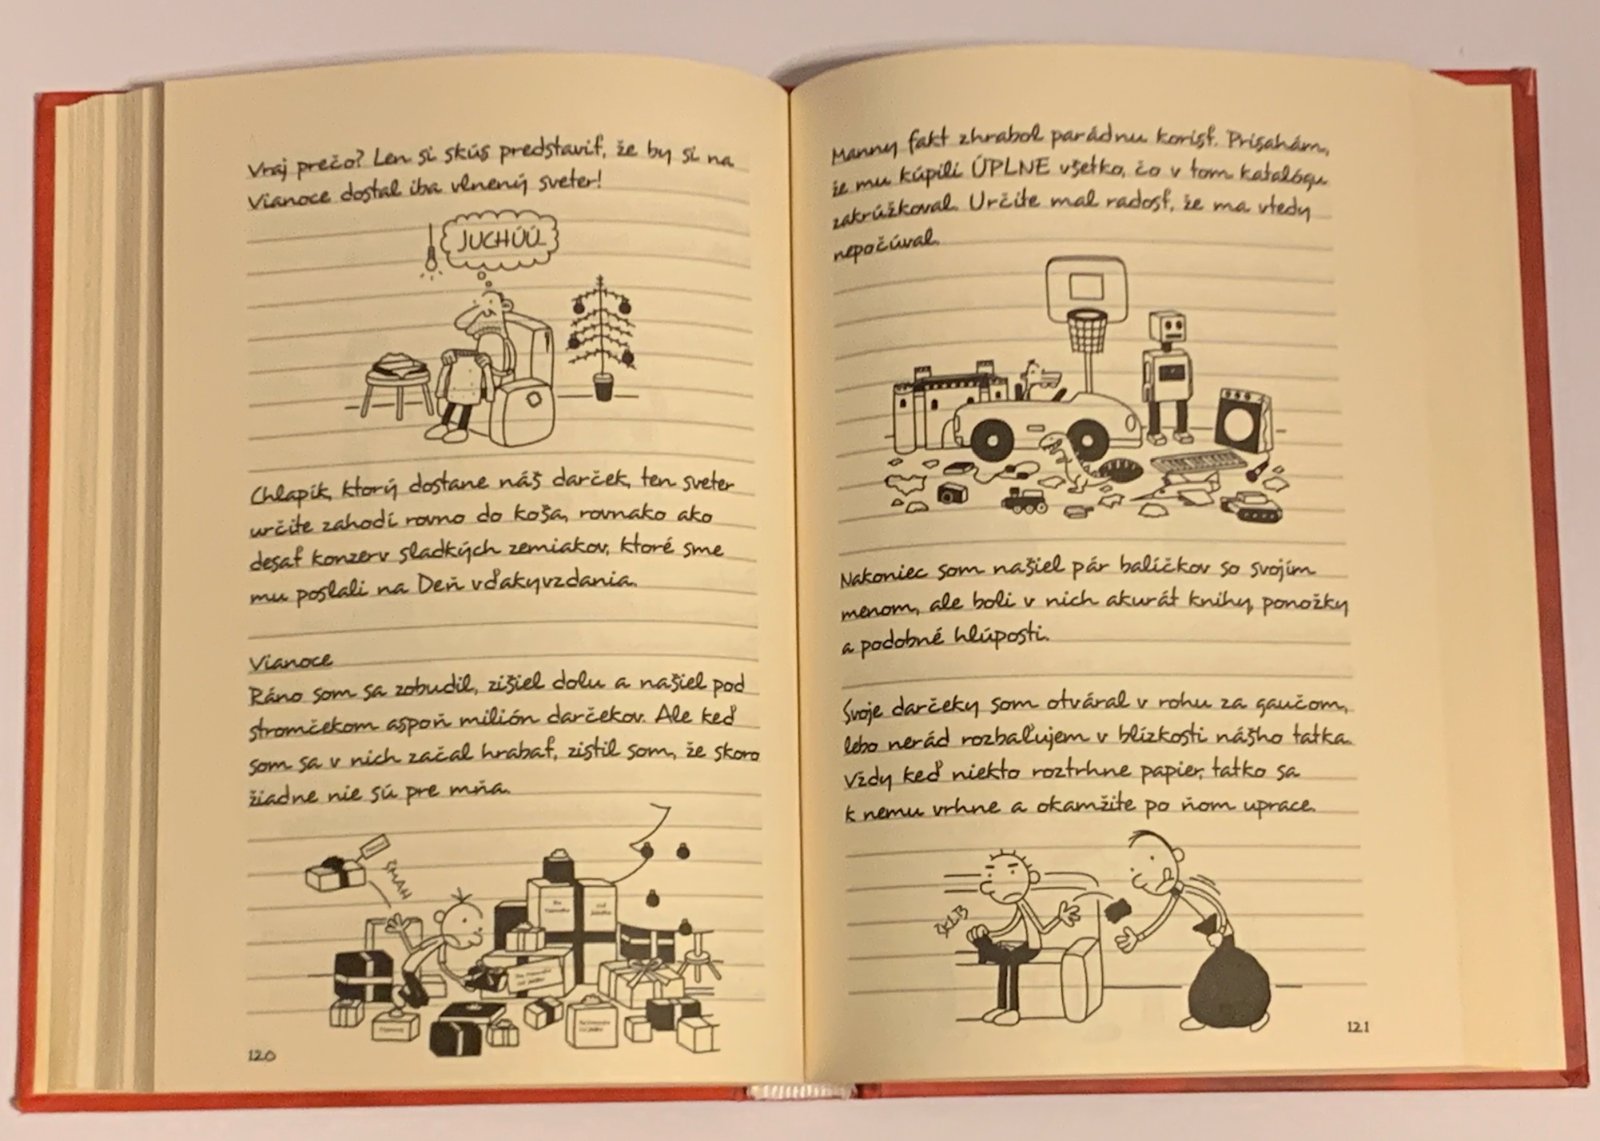 Vraj prečo? Len si skús predstaviť, že by si na
Vianoce dostal iba vlnený sveter!
JUCHÚÚ
Chlapík, ktorý dostane náš darček, ten sveter
určite zahodí rovno do koša, rovnako ako
desať konzerv sladkých zemiakov, ktoré sme
mu poslali na Deň vďakyvzdania.
Vianoce
Ráno som sa zobudil, zišiel dolu a našiel pod
stromčekom aspoň milión darčekov. Ale keď
som sa v nich začal hrabať, zistil som, že skoro
žiadne nie sú pre mňa.
120
Manny fakt zhrabol parádnu korisť. Prisahám,
že mu kúpili ÚPLNE všetko, čo v tom katalógu
zakrúžkoval. Určite mal radosť, že ma vtedy
nepočúval.
Nakoniec som našiel pár balíčkov so svojím
menom, ale boli v nich akurát knihy, ponožky
a podobné hlúposti.
Svoje darčeky som otváral v rohu za gaučom,
lebo nerád rozbaľujem v blízkosti nášho tatka.
Vždy keď niekto roztrhne papier, tatko sa
k nemu vrhne a okamžite po ňom uprace.
121